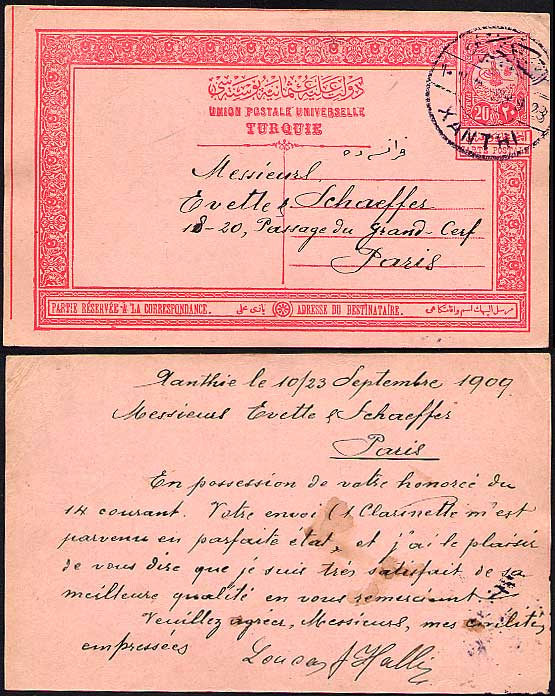 دولت علیه عثمانیه پوسته سی
UNION POSTALE UNIVERSELLE
TURQUIE
20 ٢٠
CARTE POSTALE
23
XANTHI
فرانسه ده
Messieurs
Evette & Schaeffer
18-20, Passage du Grand-Cerf
Paris
PARTIE RÉSERVÉE À LA CORRESPONDANCE. ADRESSE DU DESTINATAIRE.
Xanthie le 10/23 Septembre 1909
Messieurs Evette & Schaeffer
Paris
En possession de votre honorée du
14 courant. Votre envoi (1 Clarinette m'est
parvenu en parfaite état, et j'ai le plaisir
de vous dire que je suis très satisfait de sa
meilleure qualité en vous remerciant.
Veuillez agréer, Messieurs, mes civilités
empressées